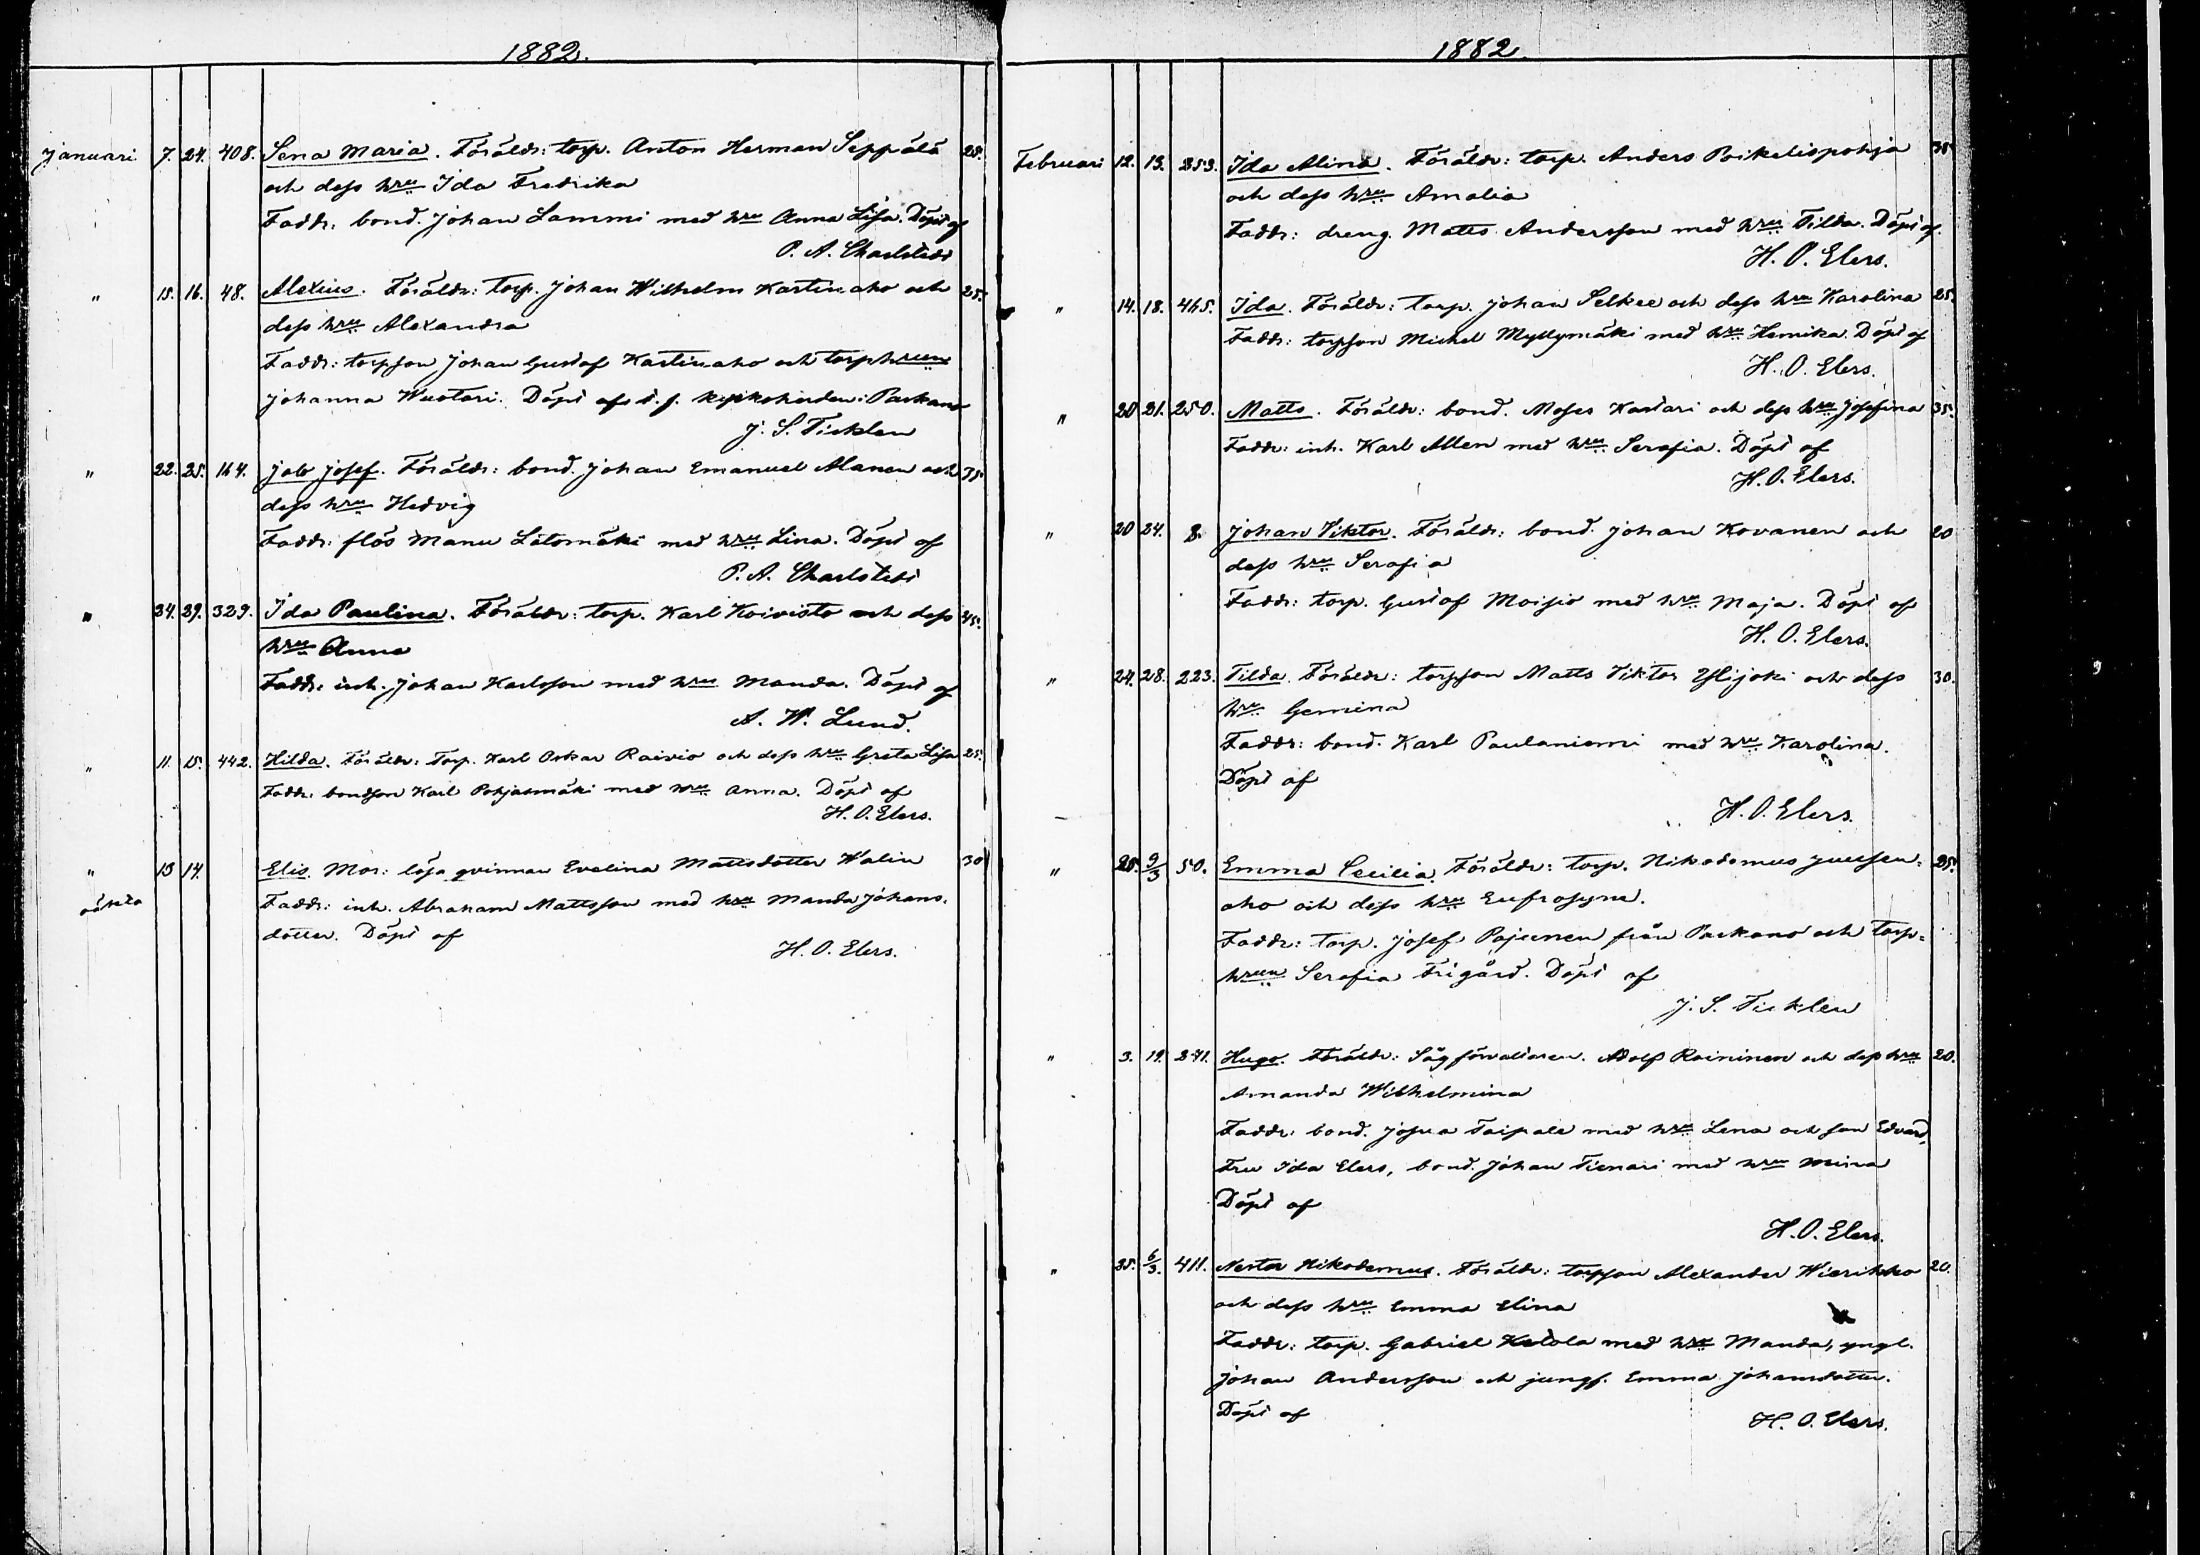 1882.
Januari 7. 24. 408. Sena Maria. Föräldr: torp. Anton Herman Seppälä 25.
och dess hru Ida Fredrika
Faddr: bond. Johan Lammi med hru Anna Lisa. Döpt af
P. A. Charlstedt
" 15. 16. 48. Alexius. Föräldr: torp. Johan Wilhelm Kartinaho och 25.
dess hru Alexandra
Faddr: torpson Johan Gustaf Kartinaho och torphrun
Johanna Wuotari. Döpt af i Parkano
J. S. Ticklen
" 22. 25. 164. Job Josef. Föräldr: bond. Johan Emanuel Alanen och 35.
dess hru Hedvig
Faddr: Manu Latomäki med hru Lina. Döpt af
P. A. Charlstedt
" 24. 29. 329. Ida Paulina. Föräldr: torp. Karl Koivisto och dess 45.
hru Anna
Faddr: inh. Johan Karlsson med hru Manda. Döpt af
A. W. Lund.
" 11. 15. 442. Hilda. Föräldr: Torp. Karl Oskar Raivio och dess hru Greta Lisa 25.
Faddr: bondson Karl Pohjasmäki med hru Anna. Döpt af
H. O. Elers.
" 13 17. Elis. Mor: lösa qvinnan Evelina Mattsdotter Walin 30
oäkta Faddr: inh. Abraham Mattsson med hru Manda Johans-
dotter. Döpt af
H. O. Elers.
1882.
Februari 12. 13. 253. Ida Alina. Föräldr: torp. Anders Poikelispohja 35
och dess hru Amalia
Faddr: dreng. Matts Andersson med hru Tilda. Döpt af
H. O. Elers.
" 14. 18. 465. Ida. Föräldr: torp. Johan Selkee och dess hru Karolina 25.
Faddr: torpson Michel Myllymäki med hru Hemika. Döpt af
H. O. Elers.
" 20 21. 250. Matts. Föräldr: bond. Moses Kastari och dess hru Josefina 35.
Faddr: inh. Karl Allen med hru Serafia. Döpt af
H. O. Elers.
" 20 24. 8. Johan Viktor. Föräldr: bond. Johan Kovanen och 20
dess hru Serafia
Faddr: torp. Gustaf Moisio med hru Maja. Döpt af
H. O. Elers.
" 24. 28. 223. Tilda. Föräldr: torpson Matts Viktor Ylijoki och dess 30.
hru Gemina
Faddr: bond. Karl Paulaniemi med hru Karolina.
Döpt af
H. O. Elers.
" 25. 9/3 50. Emma Cecilia. Föräldr: torp. Nikodemus Juusen- 25.
aho och dess hru Eufrosyne.
Faddr: torp. Josef Pajunen från Parkano och torp-
hrun Serafia Frigård. Döpt af
J. S. Ticklen
" 3. 19. 271. Hugo. Föräldr: Sågförvaltaren. Adolf Roininen och dess hru 20.
Amanda Wilhelmina
Faddr: bond. Josua Taipale med hru Lena och son Edvard,
Fru Ida Elers, bond. Johan Tienari med hru Mina
Döpt af
H. O. Elers.
" 25. 6/3. 411. Nestor Nikodemus. Föräldr: torpson Alexander Wierikko 20.
och dess hru Emma Elina
Faddr: torp. Gabriel Ketola med hru Manda, yngl.
Johan Andersson och jungf. Emma Johansdotter.
Döpt af
H. O. Elers.